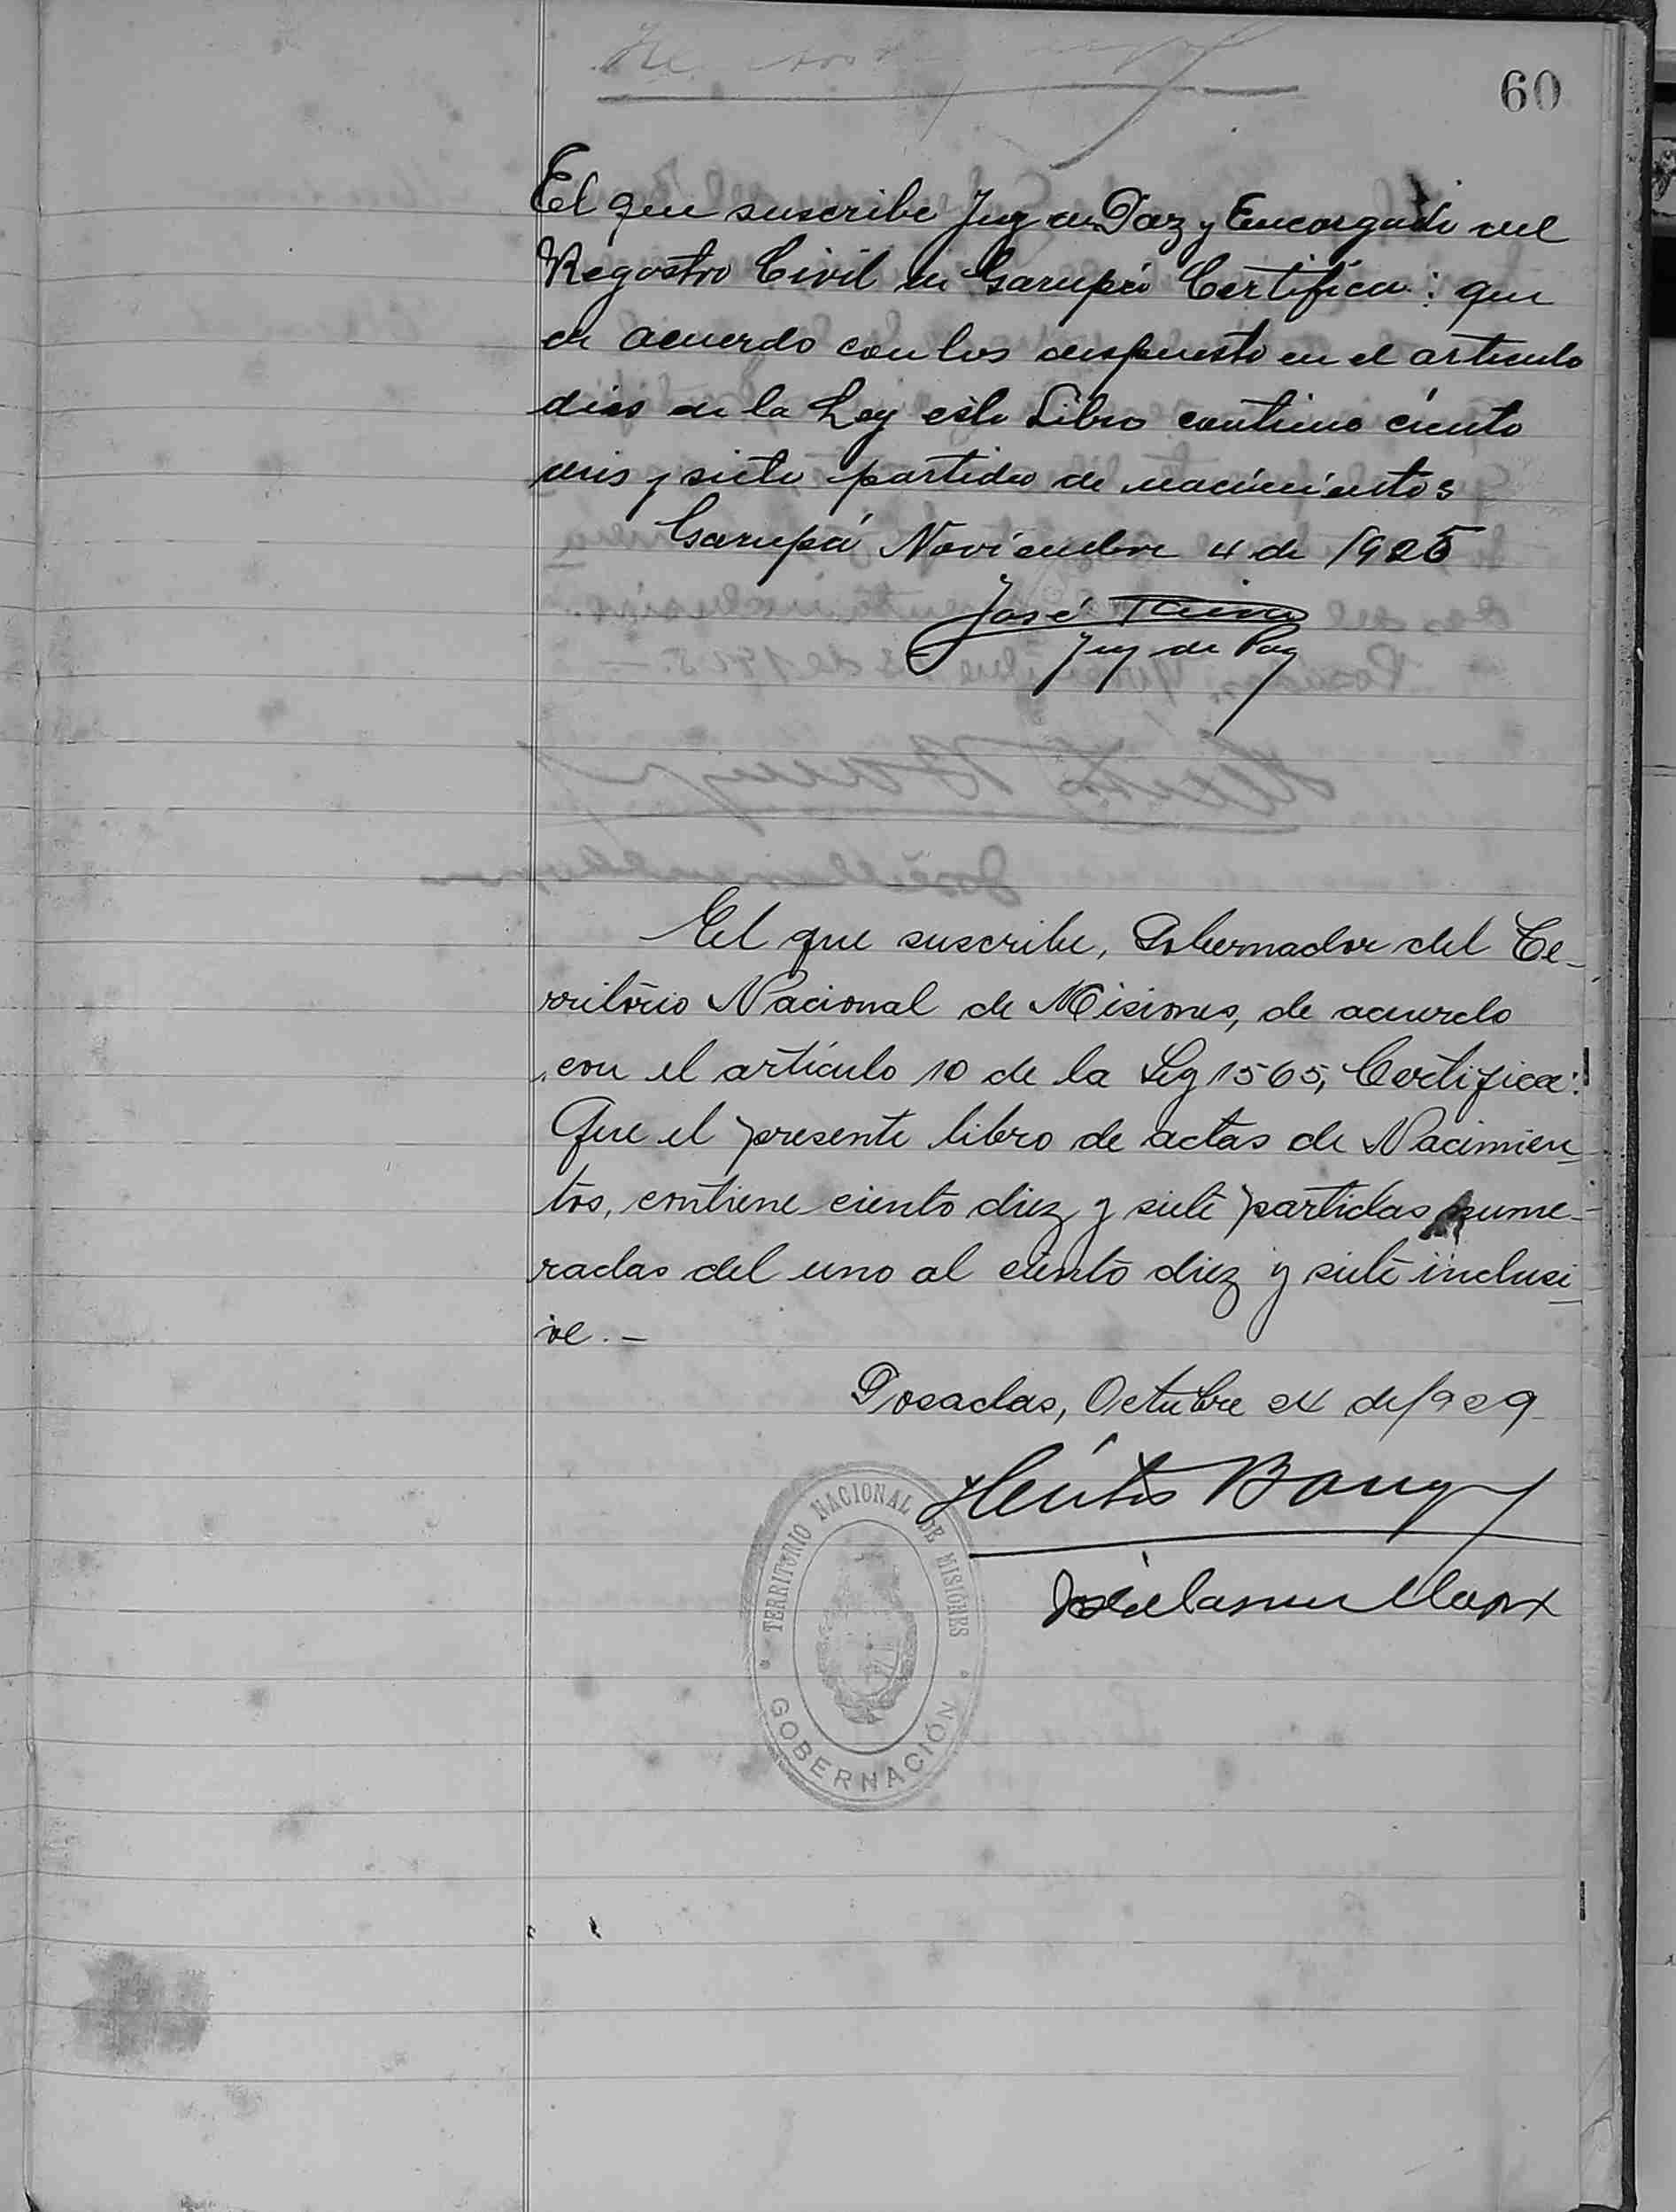 60
El que suscribe Juez de Paz y Encargado del
Registro Civil de Garupá Certifica: que
de acuerdo con los dispuesto en el articulo
dies de la Ley este Libro contiene ciento
dies y siete partidas de nacimientos
Garupá Noviembre 4 de 1925
José
Juez de Paz
El que suscribe, Gobernador del Te-
rritorio Nacional de Misiones, de acuerdo
con el artículo 10 de la Ley 1565, Certifica:
Que el presente libro de actas de Nacimien-
tos, contiene ciento diez y siete partidas nume-
radas del uno al ciento diez y siete inclusi-
ve.-
Posadas, Octubre 24 de 1929
Héctor Barreyro
TERRITORIO NACIONAL DE MISIONES
GOBERNACIÓN